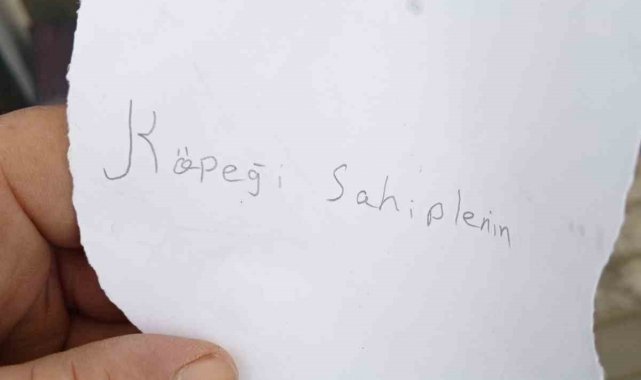 Köpeği Sahiplenin